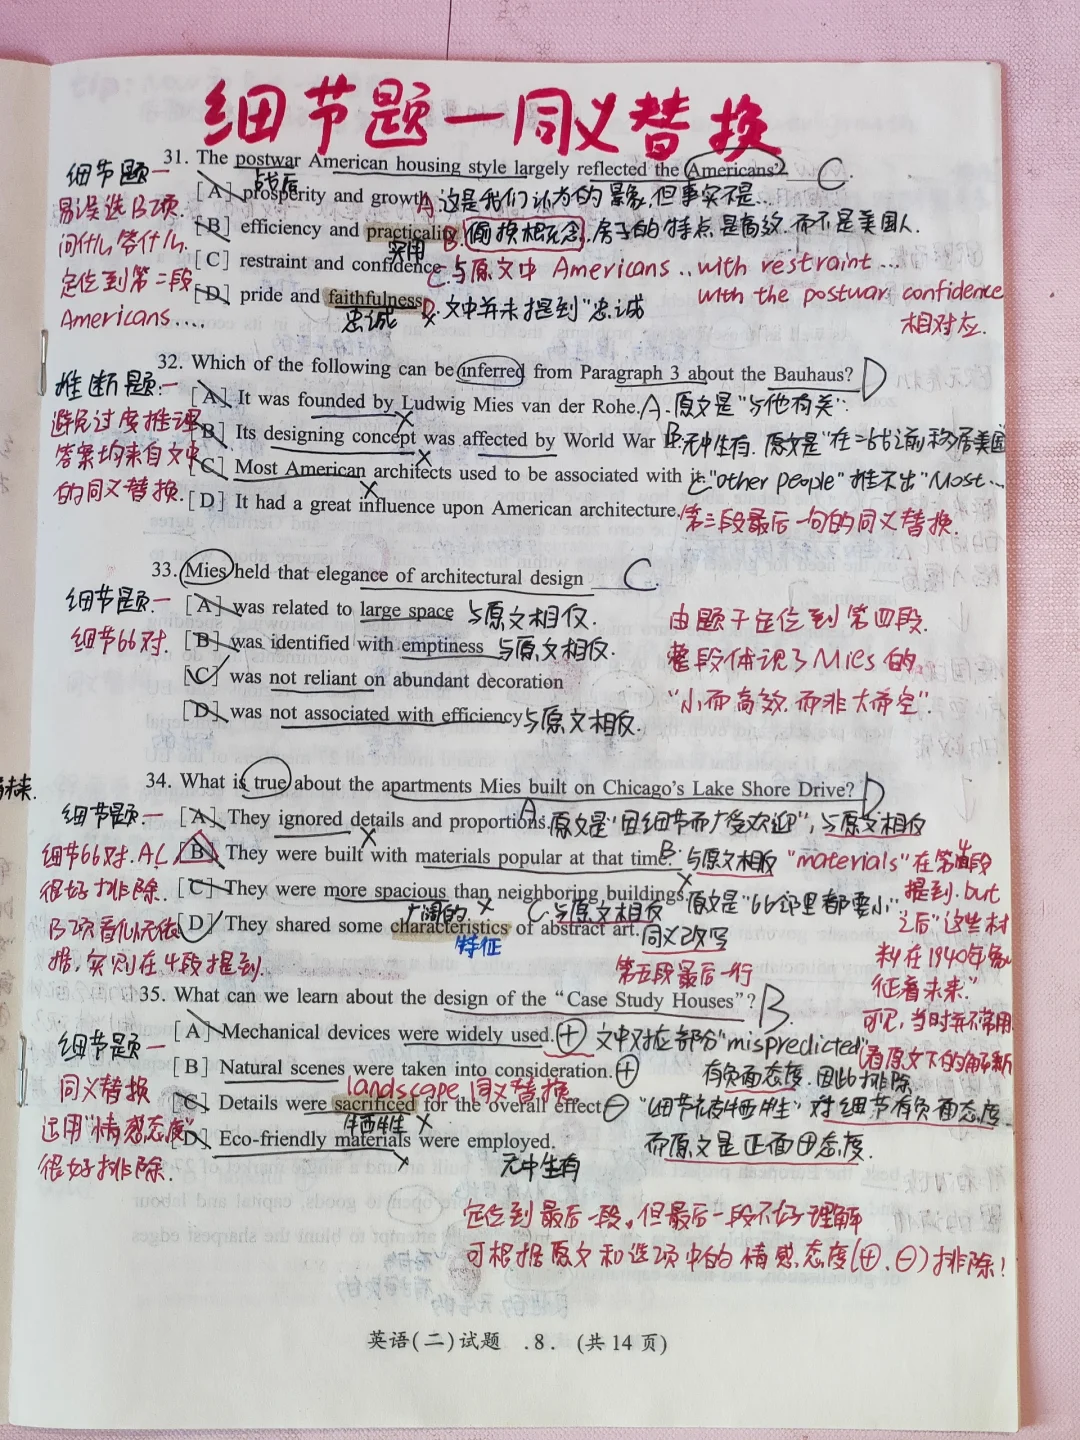 细节题一同义替换
31. The postwar American housing style largely reflected the Americans' C.
细节题一
战后
[A] prosperity and growth A.这是我们认为的景象,但事实不是…
易误选B项.
[B] efficiency and practicality B.偷换概念,房子的特点是高效,而不是美国人.
问什么答什么.
实用
[C] restraint and confidence C.与原文中 Americans ..with restraint ...
定位到第二段
with the postwar confidence
[D] pride and faithfulness D.文中并未提到"忠诚
忠诚
Americans....
相对应.
32. Which of the following can be inferred from Paragraph 3 about the Bauhaus? D
推断题:一
[A] It was founded by Ludwig Mies van der Rohe. A.原文是"与他有关".
避免过度推理
[B] Its designing concept was affected by World War B:无中生有.原文是"在二战之前移居美国
答案均来自文中
[C] Most American architects used to be associated with it. C"other people"推不出"Most...
的同义替换.
[D] It had a great influence upon American architecture. 第三段最后一句的同义替换.
33. Mies held that elegance of architectural design C
细节题一
[A] was related to large space 与原文相反.
由题干定位到第四段.
细节66对.
[B] was identified with emptiness 与原文相反.
整段体现了Mies的
[C] was not reliant on abundant decoration
"小而高效.而非大而空".
[D] was not associated with efficiency 与原文相反.
34. What is true about the apartments Mies built on Chicago's Lake Shore Drive? D
细节题一
[A] They ignored details and proportions. A原文是"因细节而广受欢迎",与原文相反
细节66对.AC
[B] They were built with materials popular at that time. B:与原文相反 "materials"在第4段
很好排除.
提到.but
[C] They were more spacious than neighboring buildings. 原文是"66邻里都要小"
广阔的
C.与原文相反
之后"这些材
B项看似无依
[D] They shared some characteristics of abstract art. 同义改写
特征
料在1940年象
据,实则在4段提到.
第五段最后一行
征着未来."
可见,当时并不常用
35. What can we learn about the design of the "Case Study Houses"? B.
细节题一
[A] Mechanical devices were widely used. ⊕ 文中对应部分"mispredicted"
同义替换
[B] Natural scenes were taken into consideration. ⊕ 有负面态度.因此排除.
landscape 同义替换.
[C] Details were sacrificed for the overall effect. ⊖ "细节被牺牲"对细节有负面态度.
牺牲
运用"情感态度"
[D] Eco-friendly materials were employed.
而原文是正面⊕态度.
很好排除.
无中生有
定位到最后一段,但最后一段不好理解
可根据原文和选项中的情感态度(⊕.⊖)排除!
英语(二)试题 .8. (共14页)